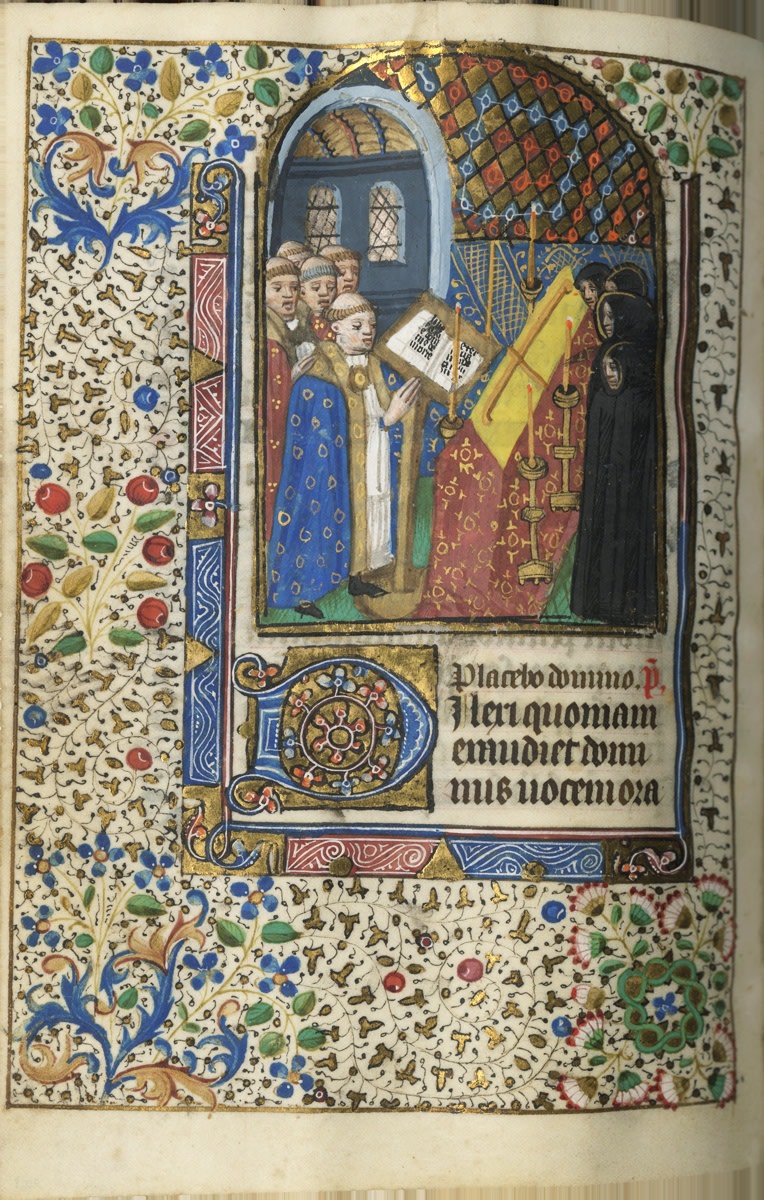 Placebo domino. p̄s,
Dilexi quoniam
exaudiet domi
nus uocem ora